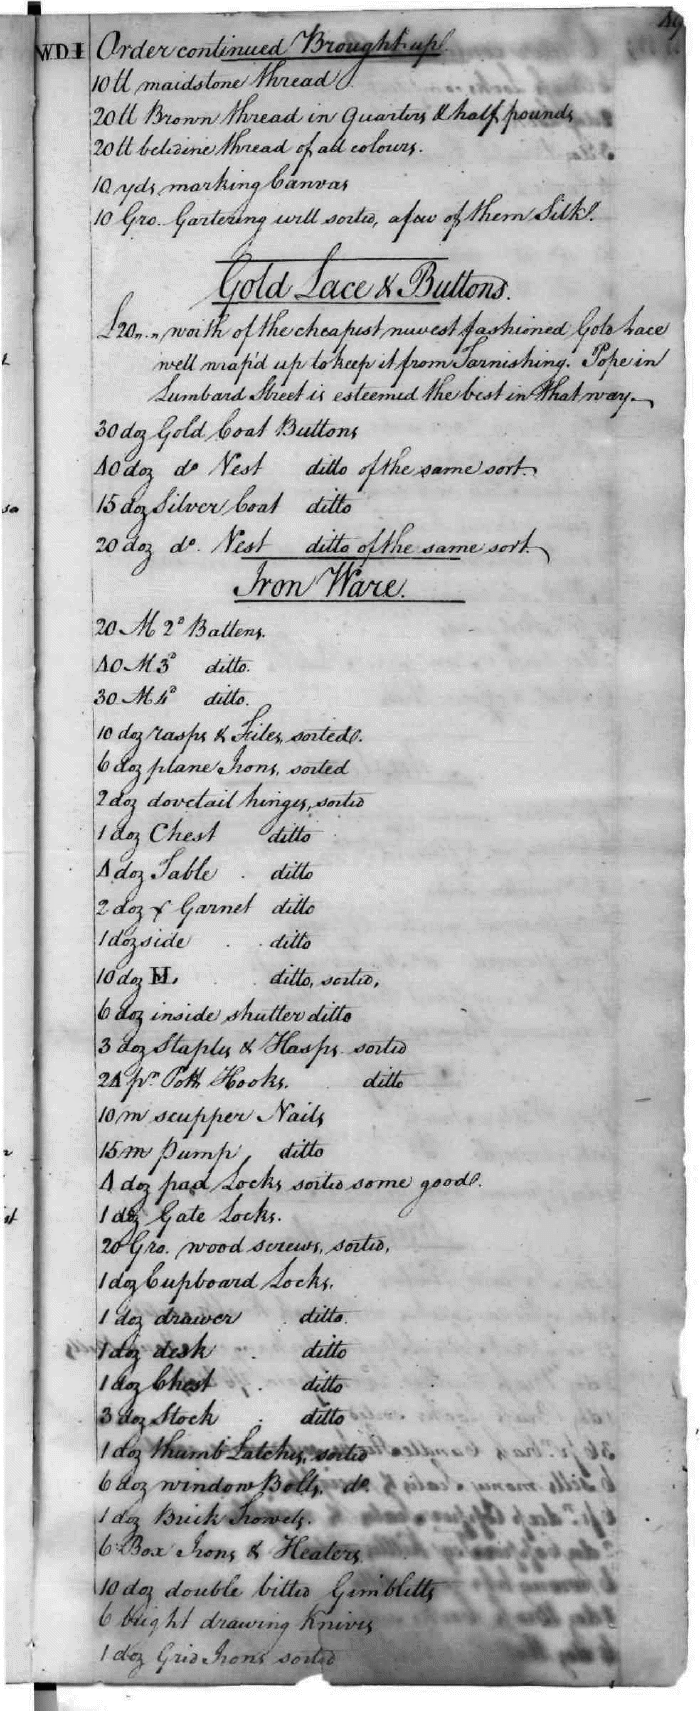 49
WDI Order continued Brought up
10 lt maidstone thread
20 lt Brown thread in quarters & half pounds
20 lt beladine thread of all colours.
10 yds marking Canvas
10 Gro. Gartering well sorted, a few of them Silk.
Gold Lace & Buttons.
£20,, ,, worth of the cheapest newest fashioned Gold Lace
well wrap'd up to keep it from Tarnishing. Pope in
Lumbard Street is esteemed the best in that way.
30 doz Gold Coat Buttons
40 doz do Vest ditto of the same sort.
15 doz Silver Coat ditto
20 doz do. Vest ditto of the same sort.
Iron Ware.
20 M 2d Battens.
40 M 3d ditto.
30 M 4d ditto.
10 doz rasps & Files, sorted.
6 doz plane Irons, sorted
2 doz dovetail hinges, sorted
1 doz Chest ditto
4 doz Table ditto
2 doz x Garnet ditto
1 doz side ditto
10 doz H. ditto, sorted,
6 doz inside shutter ditto
3 doz Staples & Hasps sorted
24 pr Pott Hooks. ditto
10 m scupper Nails
15 m Pump, ditto
4 doz pad Locks sorted some good.
1 doz Gate Locks.
20 Gro. wood screws, sorted,
1 doz Cupboard Locks.
1 doz drawer ditto.
1 doz desk ditto
1 doz Chest ditto
3 doz Stock ditto
1 doz thumb Latches, sorted
6 doz window Bolts. do.
1 doz Brick Trowels.
6 Box Irons & Heaters
10 doz double bitted Gimbletts
6 bright drawing Knives
1 doz Grid Irons sorted